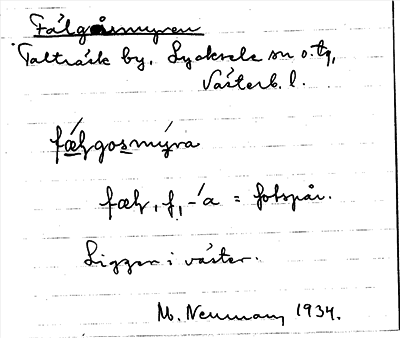 Fälgåsmyren
Talträsk by. Lycksele sn o. tg,
Västerb. l.
fælgosmýra
fælg, f, -ʹa = fotspår.
Ligger i väster.
M. Neuman, 1934.